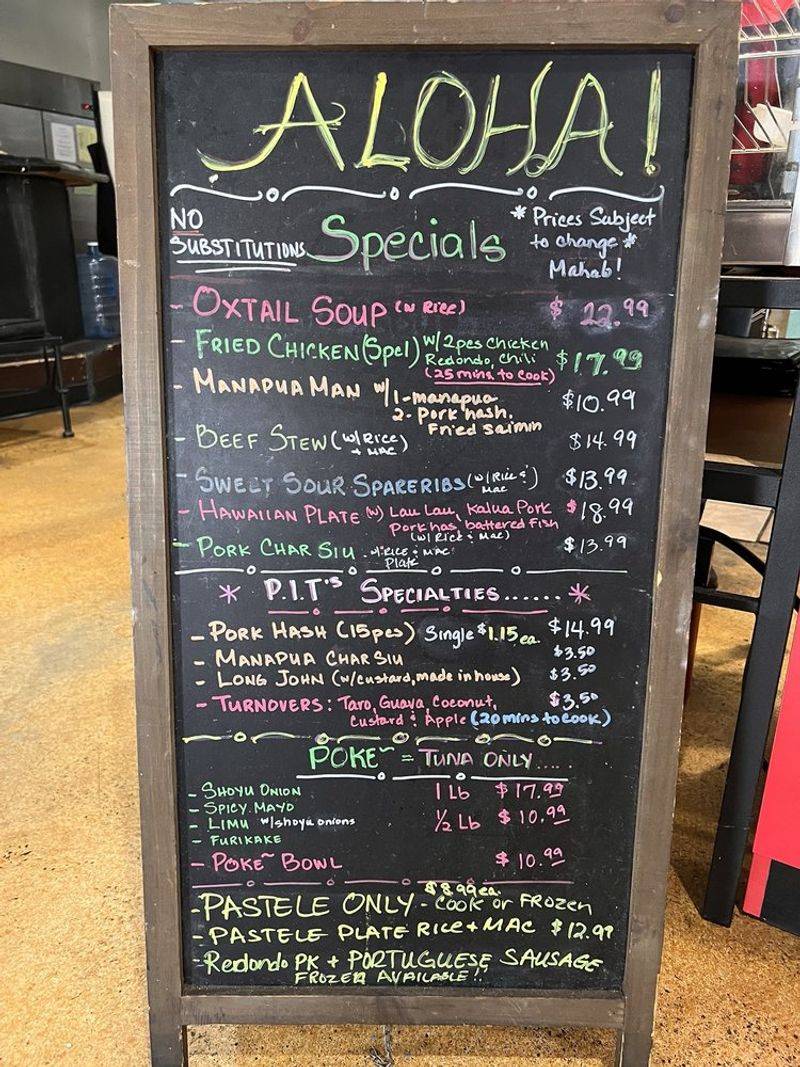 ALOHA!
NO SUBSTITUTIONS
Specials
* Prices Subject to change * Mahab!
- OXTAIL SOUP (W RICE) $22.99
- FRIED CHICKEN (Spcl) W/2pcs Chicken $17.99
Redondo, Chili
(25 mins to cook)
- MANAPUA MAN W/1-manapua $10.99
2-Pork hash,
Fried Saimin
- BEEF STEW (W/RICE + MAC) $14.99
- SWEET SOUR SPARERIBS (W/RICE & MAC) $13.99
- HAWAIIAN PLATE (W) Lau Lau, Kalua Pork $18.99
Pork has, battered Fish
(W/RICE & MAC)
- PORK CHAR SIU W/RICE & MAC Plate $13.99
* P.I.T'S SPECIALTIES...... *
- PORK HASH (15pcs) Single $1.15 ea. $14.99
- MANAPUA CHAR SIU $3.50
- LONG JOHN (w/custard, made in house) $3.50
- TURNOVERS: Taro, Guava, Coconut, $3.50
Custard & Apple (20 mins to cook)
POKE~ = TUNA ONLY.....
- SHOYU ONION 1 Lb $17.99
- SPICY MAYO
- LIMU w/shoyu onions ½ Lb $10.99
- FURIKAKE
- POKE~ BOWL $10.99
$8.99 ea.
- PASTELE ONLY - COOK OR FROZEN
- PASTELE PLATE RICE + MAC $12.99
- Redondo PK + PORTUGUESE SAUSAGE
FROZEN AVAILABLE!!